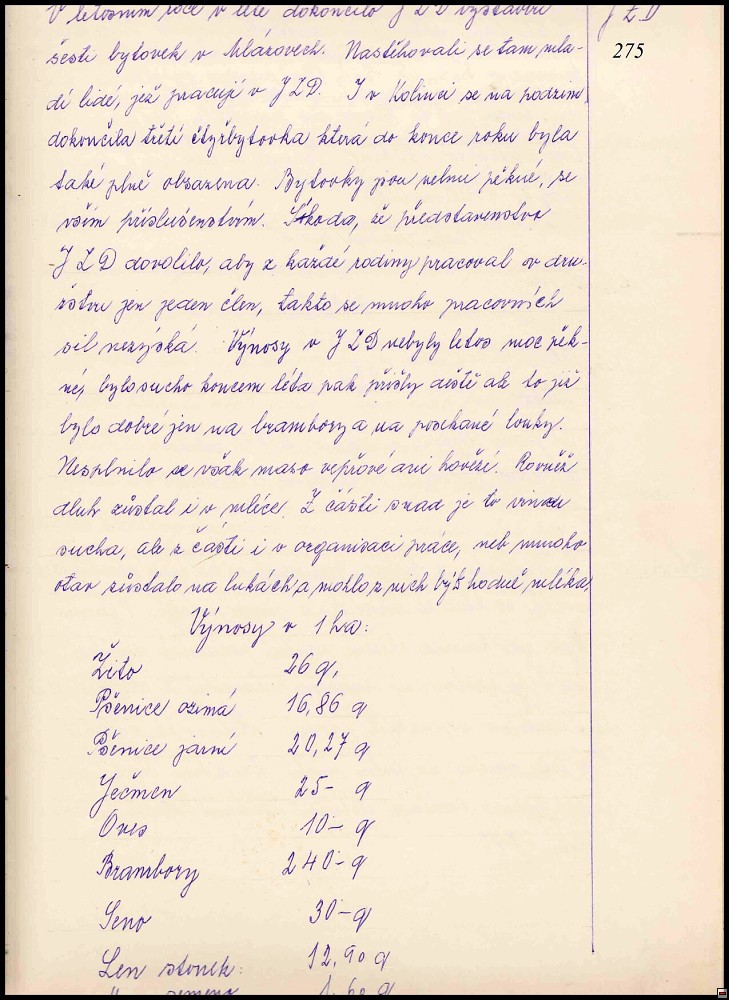 V letošním roce v létě dokončilo JZD výstavbu
JZD
275
šesti bytovek v Mlázovech. Nastěhovali se tam mla-
dí lidé, jež pracují v JZD. I v Kolinci se na podzim
dokončila třetí čtyřbytovka která do konce roku byla
také plně obsazena. Bytovky jsou velmi pěkné, se
vším příslušenstvím. Škoda, že představenstvo
JZD dovolilo, aby z každé rodiny pracoval v dru-
žstvu jen jeden člen, takto se mnoho pracovních
sil nezíská. Výnosy v JZD nebyly letos moc pěk-
né, bylo sucho koncem léta pak přišly deště ale to již
bylo dobré jen na brambory a na posekané louky.
Nesplnilo se však maso vepřové ani hovězí. Rovněž
dluh zůstal i v mléce. Z části snad je to vinou
sucha, ale z části i v organisaci práce, neb mnoho
otav zůstalo na lukách a mohlo z nich být hodně mléka.
Výnosy v 1 ha:
Žito 26 q,
Pšenice ozimá 16,86 q
Pšenice jarní 20,27 q
Ječmen 25- q
Oves 10- q
Brambory 240- q
Seno 30- q
Len stonek: 12,90 q
" semeno 1,60 q